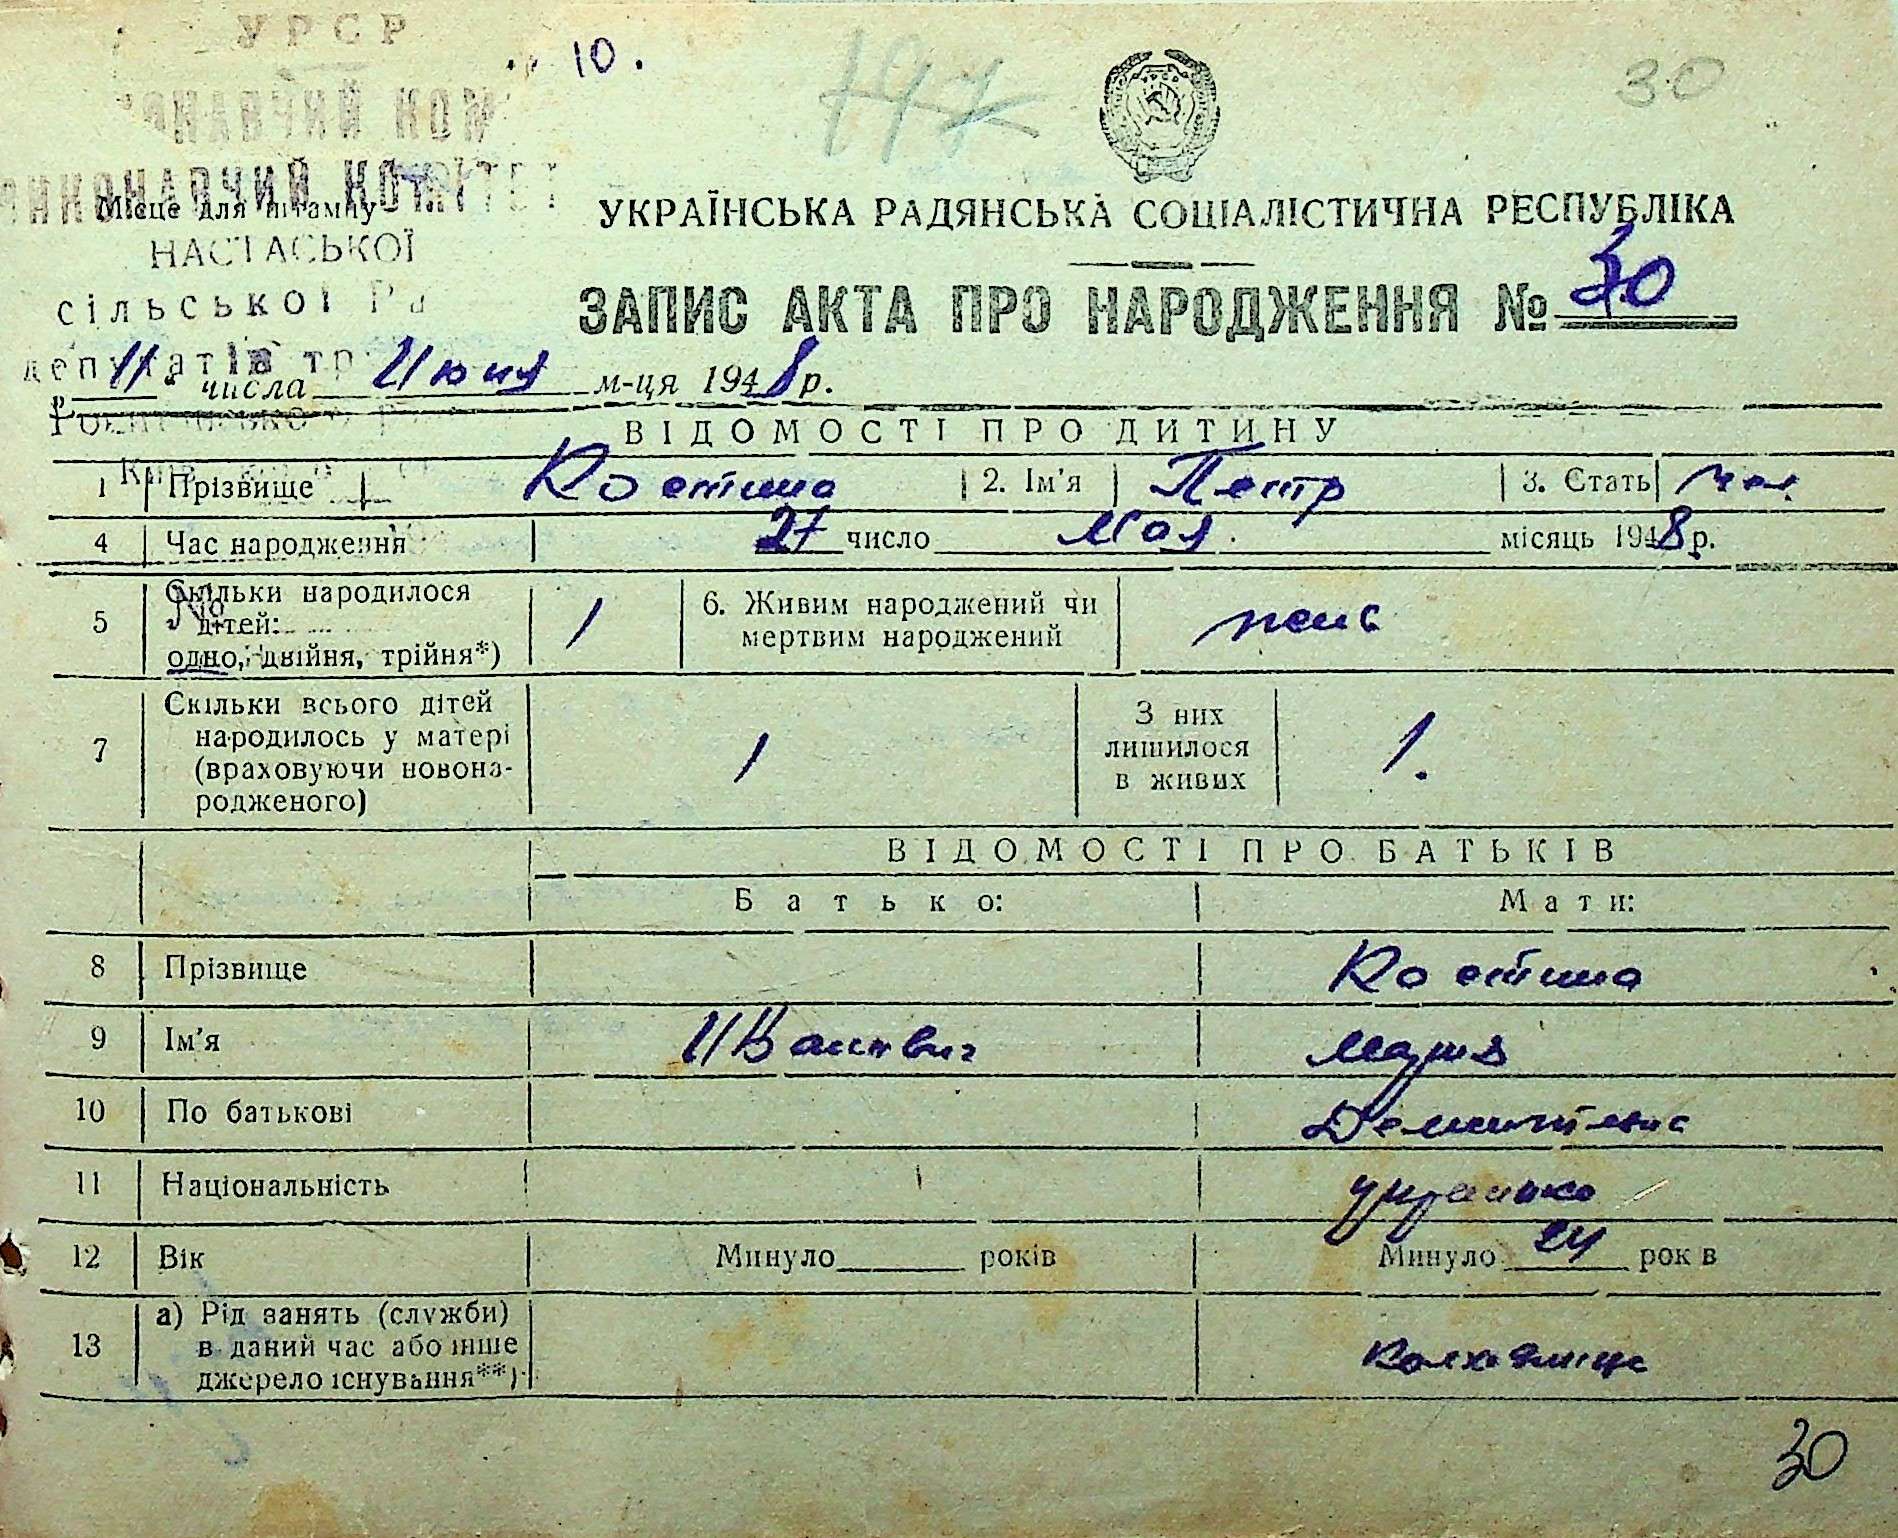 УРСР
10.
197
30
ВИКОНАВЧИЙ КОМІТЕТ
Місце для штампу
НАСТАСЬКОЇ
сільської Ра
депутатів тр
УКРАЇНСЬКА РАДЯНСЬКА СОЦІАЛІСТИЧНА РЕСПУБЛІКА
ЗАПИС АКТА ПРО НАРОДЖЕННЯ № 30
„11“ числа Июня м-ця 1948 р.
ВІДОМОСТІ ПРО ДИТИНУ
1 Прізвище Костина 2. Ім'я Петр 3. Стать
4 Час народження 27 число Мая місяць 1948 р.
5 Скільки народилося дітей: одно, двійня, трійня*) 1 6. Живим народжений чи мертвим народжений
7 Скільки всього дітей народилось у матері (враховуючи новонародженого) 1 З них лишилося в живих 1.
ВІДОМОСТІ ПРО БАТЬКІВ
Батько: Мати:
8 Прізвище Костина
9 Ім'я Мария
10 По батькові
11 Національність українка
12 Вік Минуло років Минуло 24 років
13 а) Рід занять (служби) в даний час або інше джерело існування**) Колхозница
30